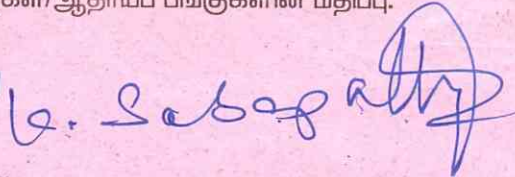 கள்/ஆதாயப் பங்குகளின் மதிப்பு.
k. Sabapathy